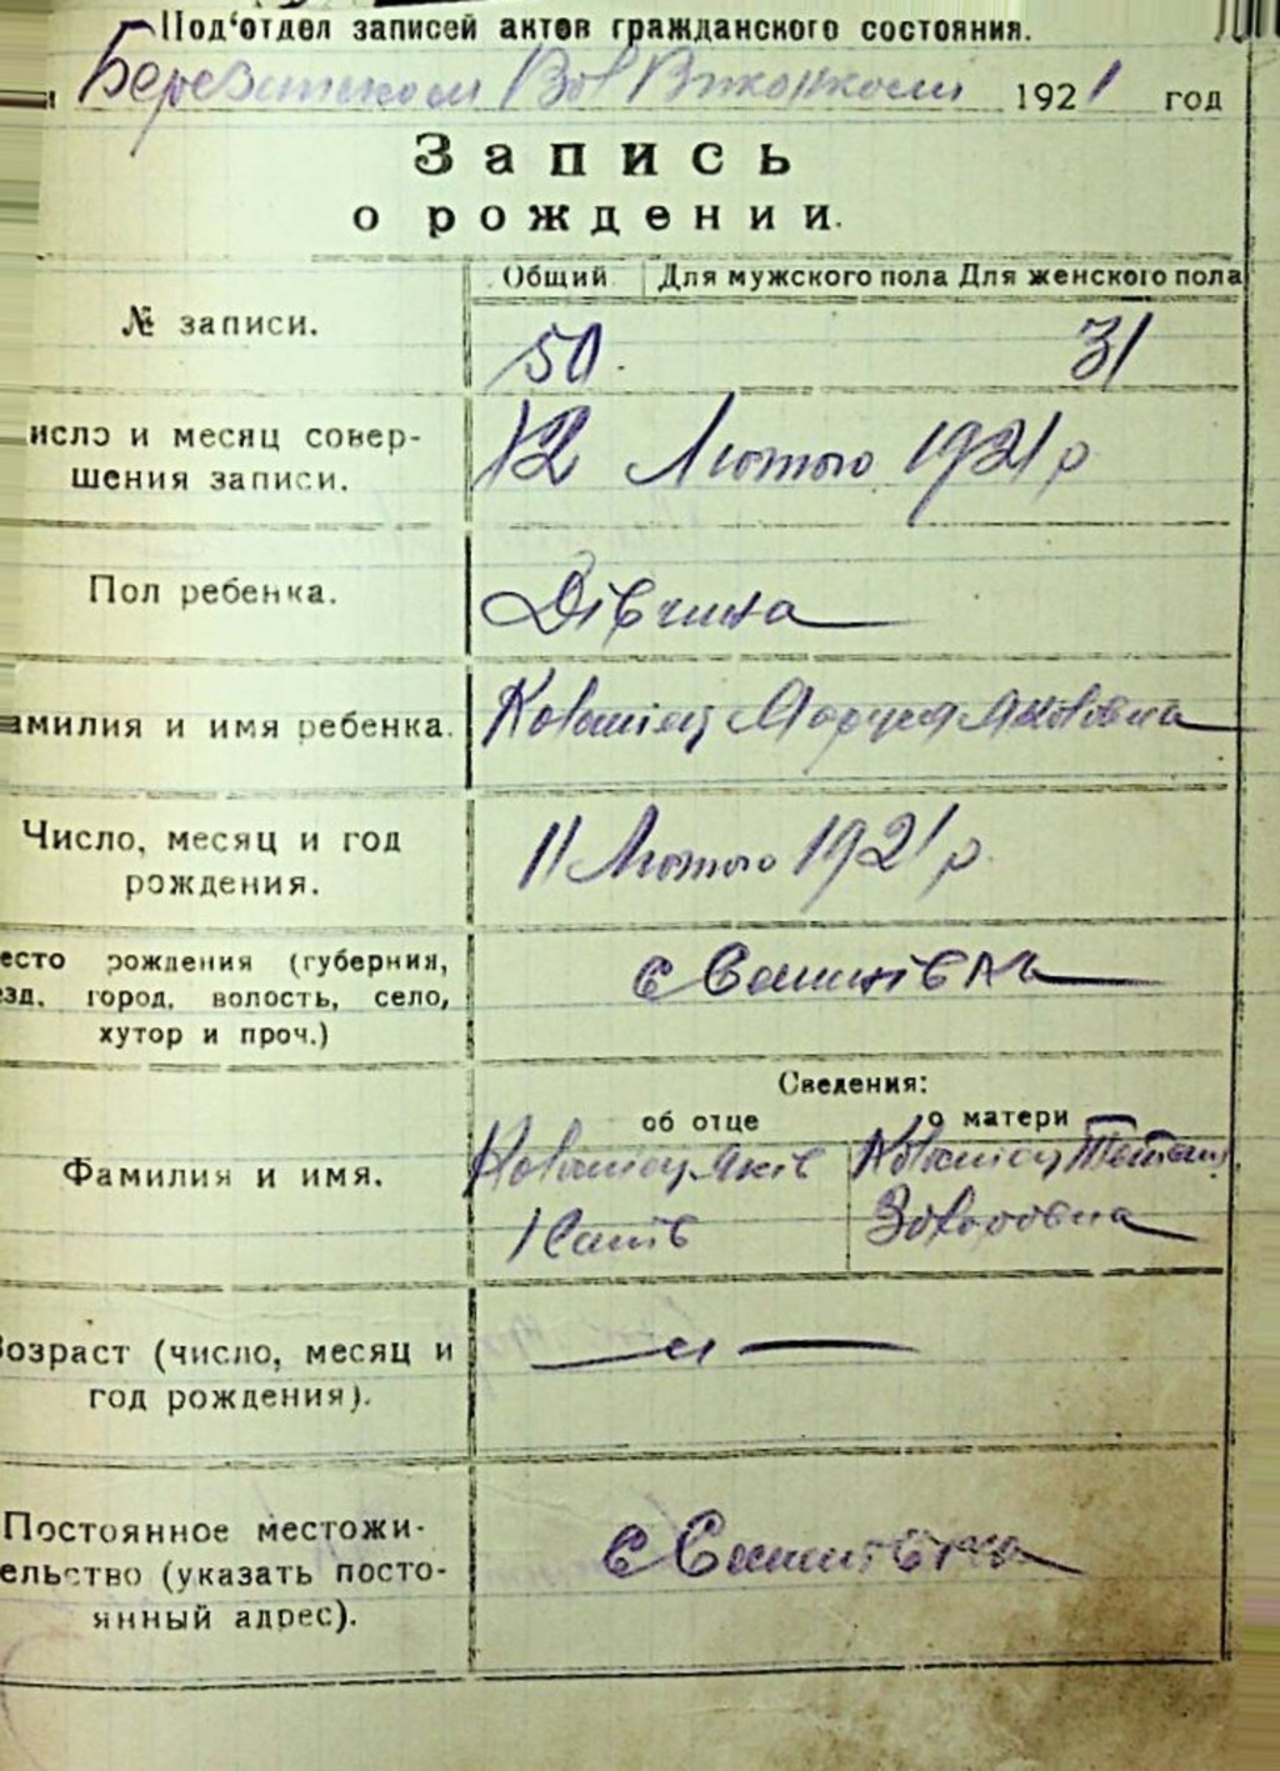 Под‘отдел записей актов гражданского состояния.
Вол Виконкоми 1921 год
Запись
о рождении.
Общий Для мужского пола Для женского пола
№ записи. 50. 31
исло и месяц совер-
шения записи.
12 Лютого 1921 р
Пол ребенка. Дівчина
амилия и имя ребенка. Коломієц Маруся Яковлівна
Число, месяц и год
рождения.
11 Лютого 1921 р.
есто рождения (губерния,
езд, город, волость, село,
хутор и проч.)
с
Сведения:
об отце о матери
Фамилия и имя.
Коломієц Яків
Коломієц Тетяна
Возраст (число, месяц и
год рождения).
Постоянное местожи-
ельство (указать посто-
янный адрес).
с